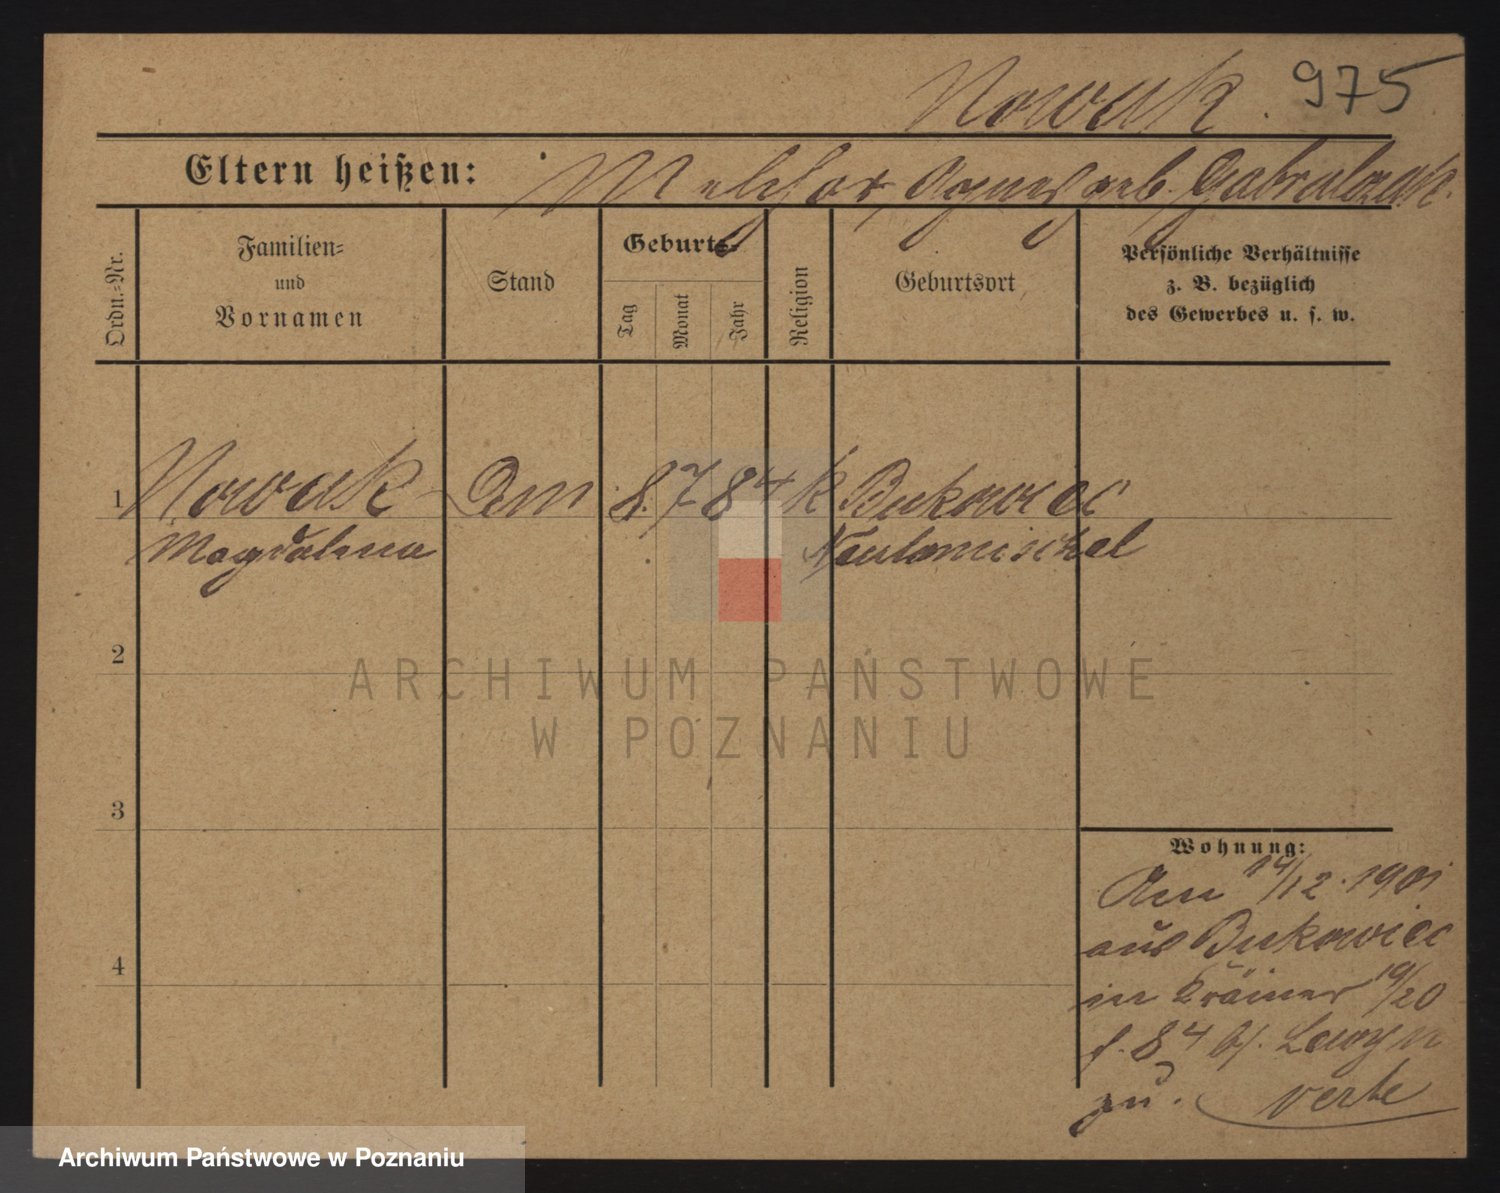 Nowak. 975
Eltern heißen: Melchor, Agnes geb. Gabrialczak.
Ordn.=Nr.
Familien=
und
Vornamen
Stand
Geburts=
Tag
Monat
Jahr
Religion
Geburtsort
Persönliche Verhältnisse
z. B. bezüglich
des Gewerbes u. s. w.
1 Nowak 8. 7 84 k Bukowiec
Magdalena Neutomischel
2
3
4
Wohnung:
Am 14/12. 1901
aus Bukowiec
in Krämer 19/20
f. 84 bj.
zu. verte
ARCHIWUM PAŃSTWOWE
W POZNANIU
Archiwum Państwowe w Poznaniu